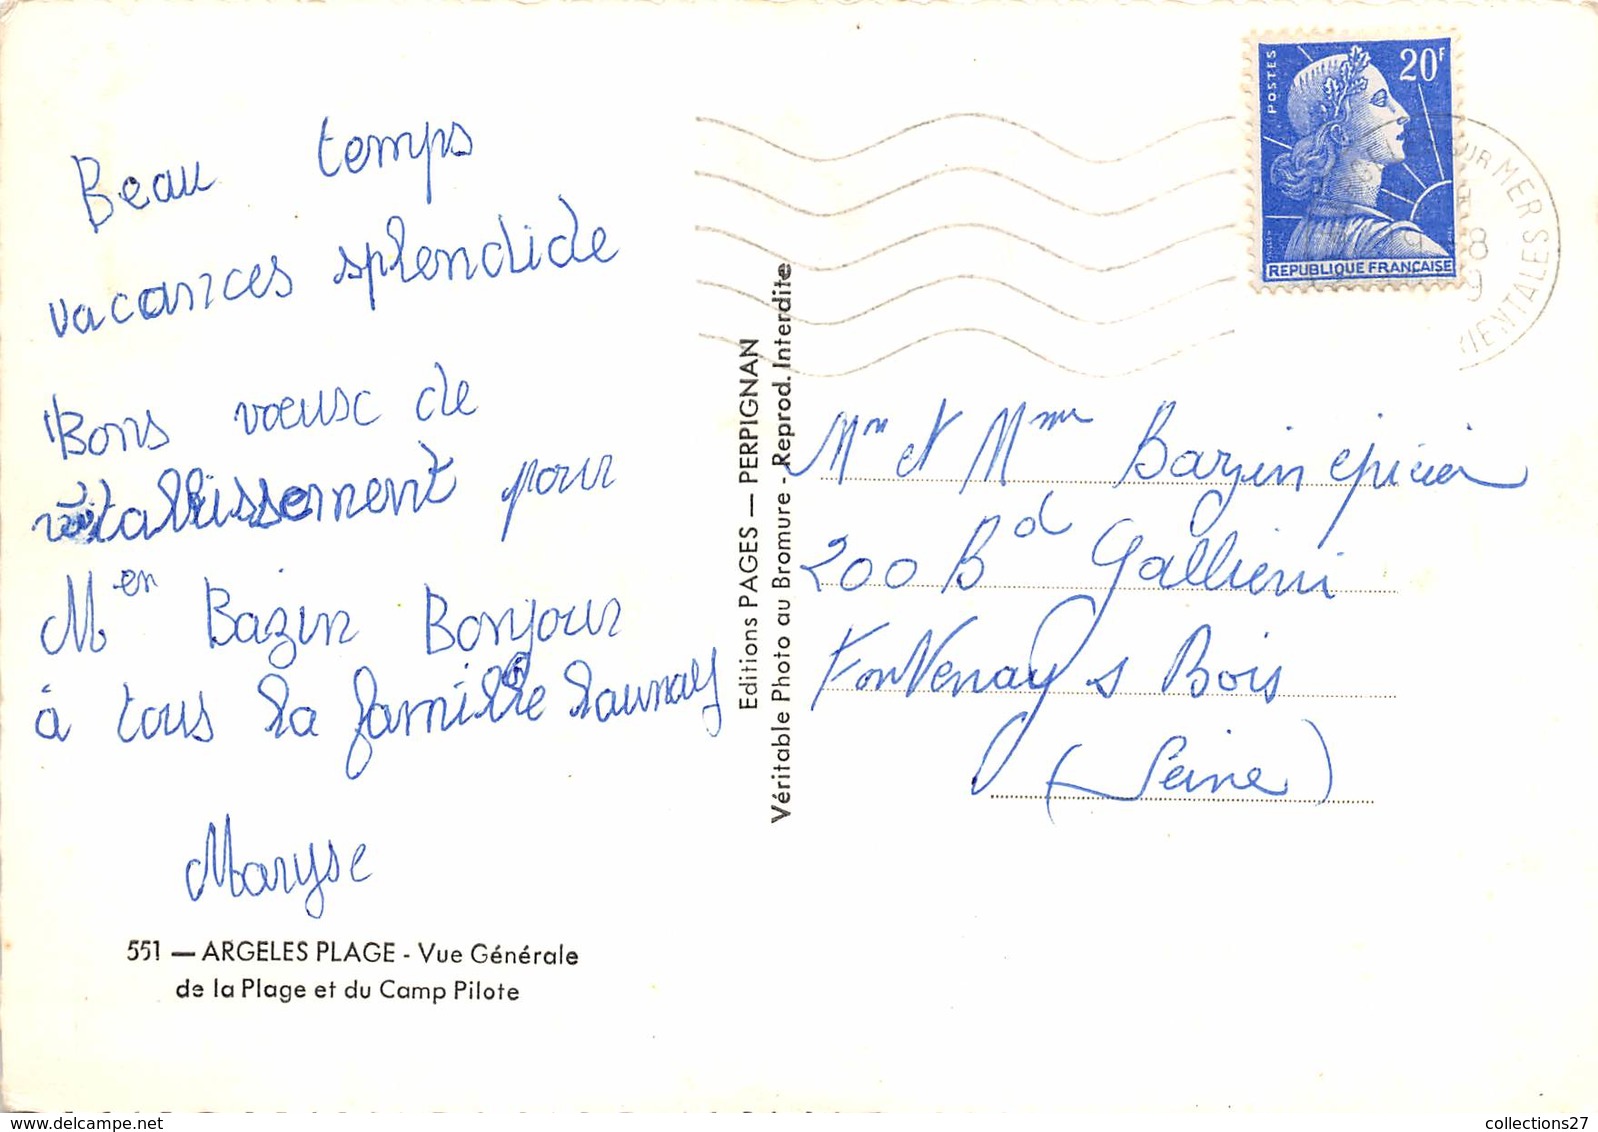 Beau temps
vacances splendide
Bons vœusc de
rétablissement pour
M^en Bazin Bonjour
à tous la famille launay
Maryse
551 — ARGELES PLAGE - Vue Générale
de la Plage et du Camp Pilote
Editions PAGES — PERPIGNAN
Véritable Photo au Bromure - Reprod. Interdite
POSTES
20F
REPUBLIQUE FRANÇAISE
SUR MER
Mr et Mme Bazin épicier
200 Bd Gallieni
Fontenay s Bois
(Seine)
www.delcampe.net
collections27